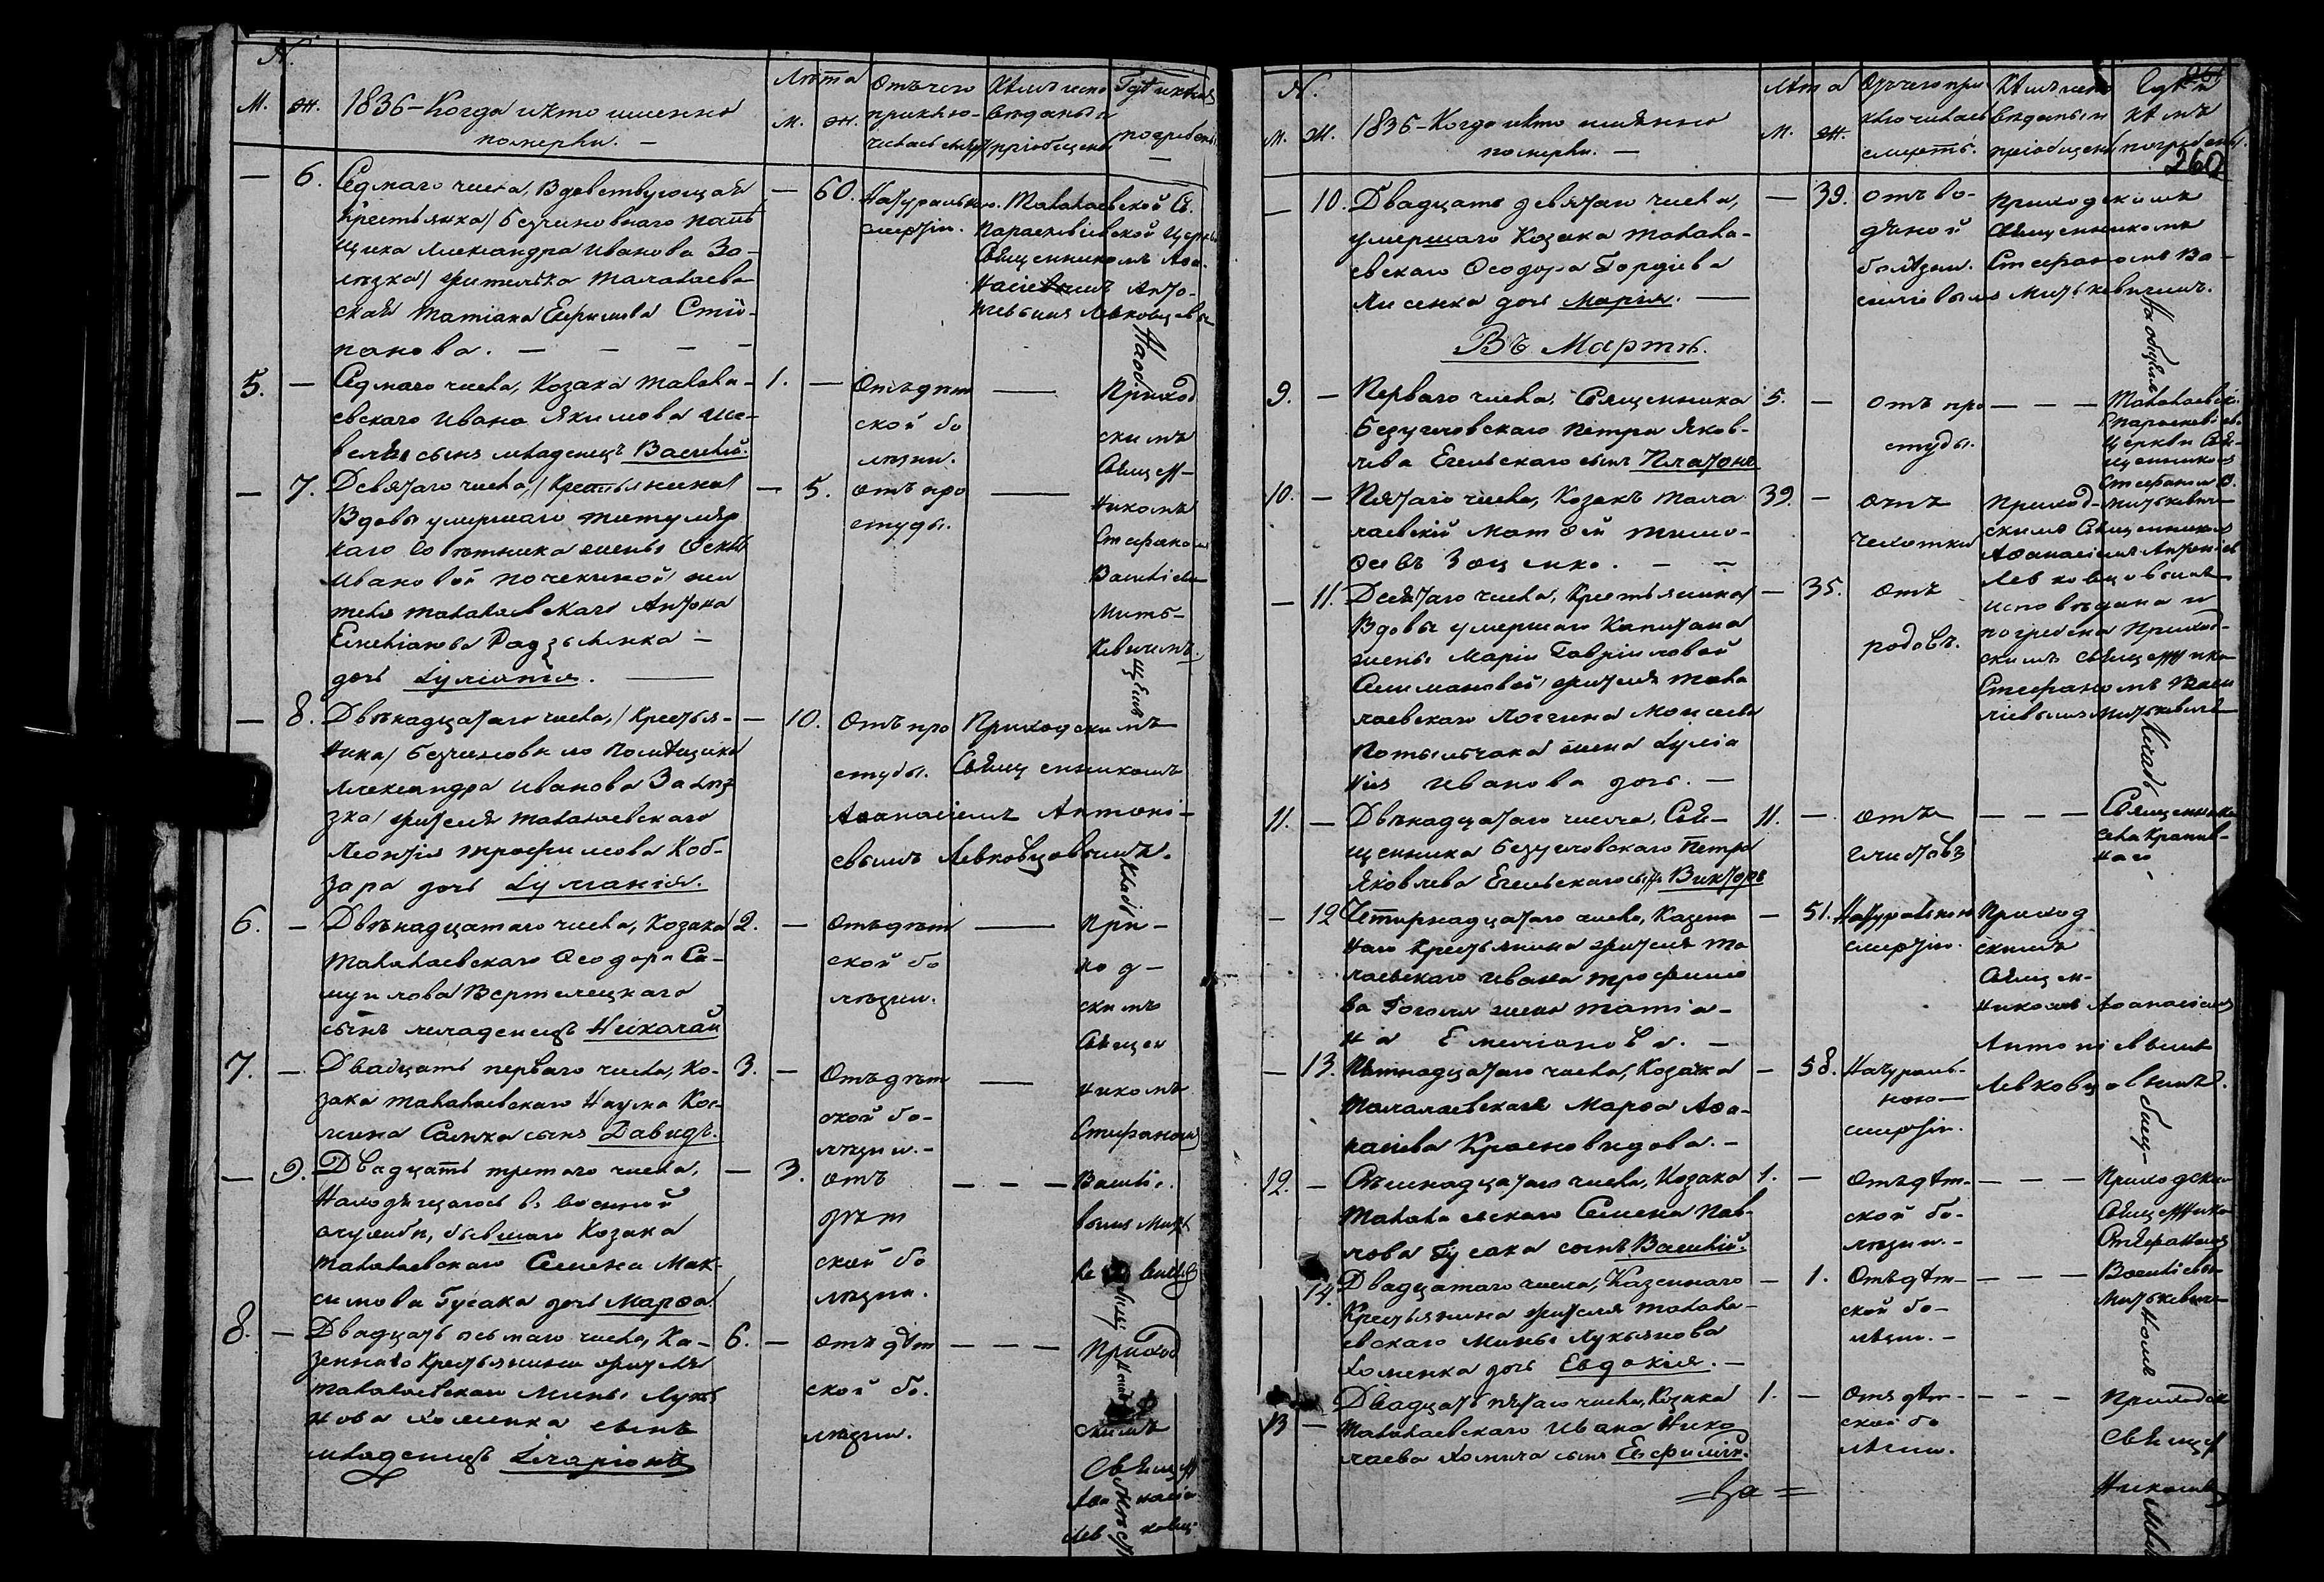 №.
М. Ж.
1836 – Когда и кто именно
померли. –
Лѣта
М. Ж.
Отъ чего
приклю-
чилась смерть
Кѣмъ испо-
вѣданы и
пріобщены
Гдѣ и кѣмъ
погребены
– 6. Седмаго числа, Вдовствующая
крестьянка / безчиновнаго помѣ
щика Александра Иванова За-
лѣзка / жителька Талалаев-
ская Татіана Ефимова Сте-
панова. – – – –
– 60.
Натуральною
смертію.
Талалаевской Св.
Параскевіевской Церкви
Священникомъ Аѳа-
насіемъ Анто-
ніевымъ Левковцевымъ
5. – Седмаго числа, Козака Талала-
евскаго Ивана Якимова Ше-
веля сынъ младенецъ Василій.
1. –
Отъ дѣт
ской бо
лѣзни.
Приход
скимъ
Священ-
никомъ
Стефаном
Василіевы
Мить-
кевичемъ.
– 7. Девятаго числа, / Крестьянина
Вдовы умершаго титуляр
наго Совѣтника жены
Ивановой Почекиной / жи
теля Талалаевскаго Антона
Емеліанова Радзѣвенка –
дочь Іуліанія.
– 5.
отъ про
студы.
– 8. Двѣнадцатаго числа, / Крестья-
нина / безчиновнаго Помѣщика
Александра Иванова Залѣз
зка / жителя Талалаевскаго
Леонтія Трофимова Коб-
заря дочь Іуліанія.
– 10.
Отъ про
студы.
Приходскимъ
Священникомъ
Аѳанасіемъ Антоні-
евымъ Левковцовымъ.
6. – Двѣнадцатаго числа, Козака
Талалаевскаго Ѳеодора Са-
муилова Вертелецкаго
сынъ младенецъ Николай
2. –
Отъ дѣт
ской бо
лѣзни.
При-
ход-
скимъ
Священ
никомъ
Стефаном
Василі.
7. – Двадцать перваго числа, Ко-
зака Талалаевскаго Наума Кос-
мина Самка сынъ Давидъ.
3. –
Отъ дѣт
ской бо-
лѣзни. –
– 9. Двадцать третьяго числа,
Находящагося въ военной
службѣ, бывшаго Козака
Талалаевскаго Семена Мак-
симова Гусака дочь Марѳа
– 3.
отъ
дѣт
ской бо
лѣзни.
8. – Двадцать осьмаго числа, Ка-
зеннаго Крестьянина жителя
Талалаевскаго Мины Лукья
нова Хоменка сынъ
младенецъ Іларіонъ
6. –
отъ дѣт
ской бо.
лѣзни.
Приход
скимъ
Священ
Аѳанасіем
Левковц
261
260
№.
М. Ж.
1836 – Когда и кто именно
померли. –
Лѣта
М. Ж.
Отъ чего при
ключилась
смерть.
Кѣмъ испо
вѣданы и
пріобщены
Гдѣ и
кѣмъ
погребены.
– 10. Двадцать девятаго числа,
умершаго Козака Талала-
евскаго Ѳеодора Гордіева
Лисенка дочь Марія. –
– 39.
отъ во-
дяной
болѣзни.
Приходскимъ
Священникомъ
Стефаномъ Ва-
силіевымъ Митькевичемъ.
Въ Мартѣ.
9. – Перваго числа, Священника
Безугловскаго Петра Яков-
лева Егельскаго сынъ Платонъ
5. –
отъ про
студы.
– – –
Талалаевск.
Параскевіев.
Церкви Свя-
щенником
Стефаном В.
Митькевичем
10. – Пятаго числа, Козакъ Тала
лаевскій Матѳей Тимо-
ѳеевъ Зоценко. – –
39. –
отъ
чехотки
Приход-
скимъ Священником
Аѳанасіемъ Антоніев
Левковцовымъ
– 11. Десятаго числа, Крестьянина /
Вдовы умершаго Капитана
жены Маріи Гавріиловой
Селимановой / жителя Тала
лаевскаго Логгина Моисеева
Потыльчака жена Іуліа
нія Иванова дочь. –
– 35.
отъ
родовъ.
исповѣдана и
погребена Приход-
скимъ Священнико
Стефаномъ Васи
ліевымъ Митькевичем
11. – Двѣнадцатаго числа, Свя-
щенника Безугловскаго Петра
Яковлева Егельскаго сынъ Викторъ
11. –
отъ
глистовъ
– – –
Священником
села Кропив-
наго –
– 12 Четырнадцатаго числа, Казен
наго Крестьянина жителя Та
лаевскаго Ивана Трофимо
ва Гоголя жена Татіа-
на Емеліанова. –
– 51.
Натуральною
смертію.
Приход
скимъ
Священ-
никомъ Аѳанасіемъ
Антоніевымъ
Левковцовымъ.
– 13. Пятнадцатаго числа, Козачка
Талалаевская Марѳа Аѳа-
насіева Красновидова. –
– 58.
Натураль-
ною
смертію.
12. – Осьмнадцатаго числа, Козака
Талалаевскаго Семена Пав-
лова Гусака сынъ Василій.
1. –
Отъ дѣт-
ской бо-
лѣзни. –
– – –
Приходским
Священнико
Стефаномъ
Василіевы
Митькевич
14. Двадцатаго числа, Казеннаго
Крестьянина жителя Талала-
евскаго Мины Лукьянова
Хоменка дочь Евдокія. –
– 1.
Отъ дѣт-
ской бо-
лѣзни. –
– – –
13 – Двадцать пятаго числа, Козака
Талалаевскаго Ивана Нико
лаева Хомича сынъ Евфимій.
1. –
Отъ дѣт-
ской бо
лѣзни.
– – –
Приходск
Священ
никомъ